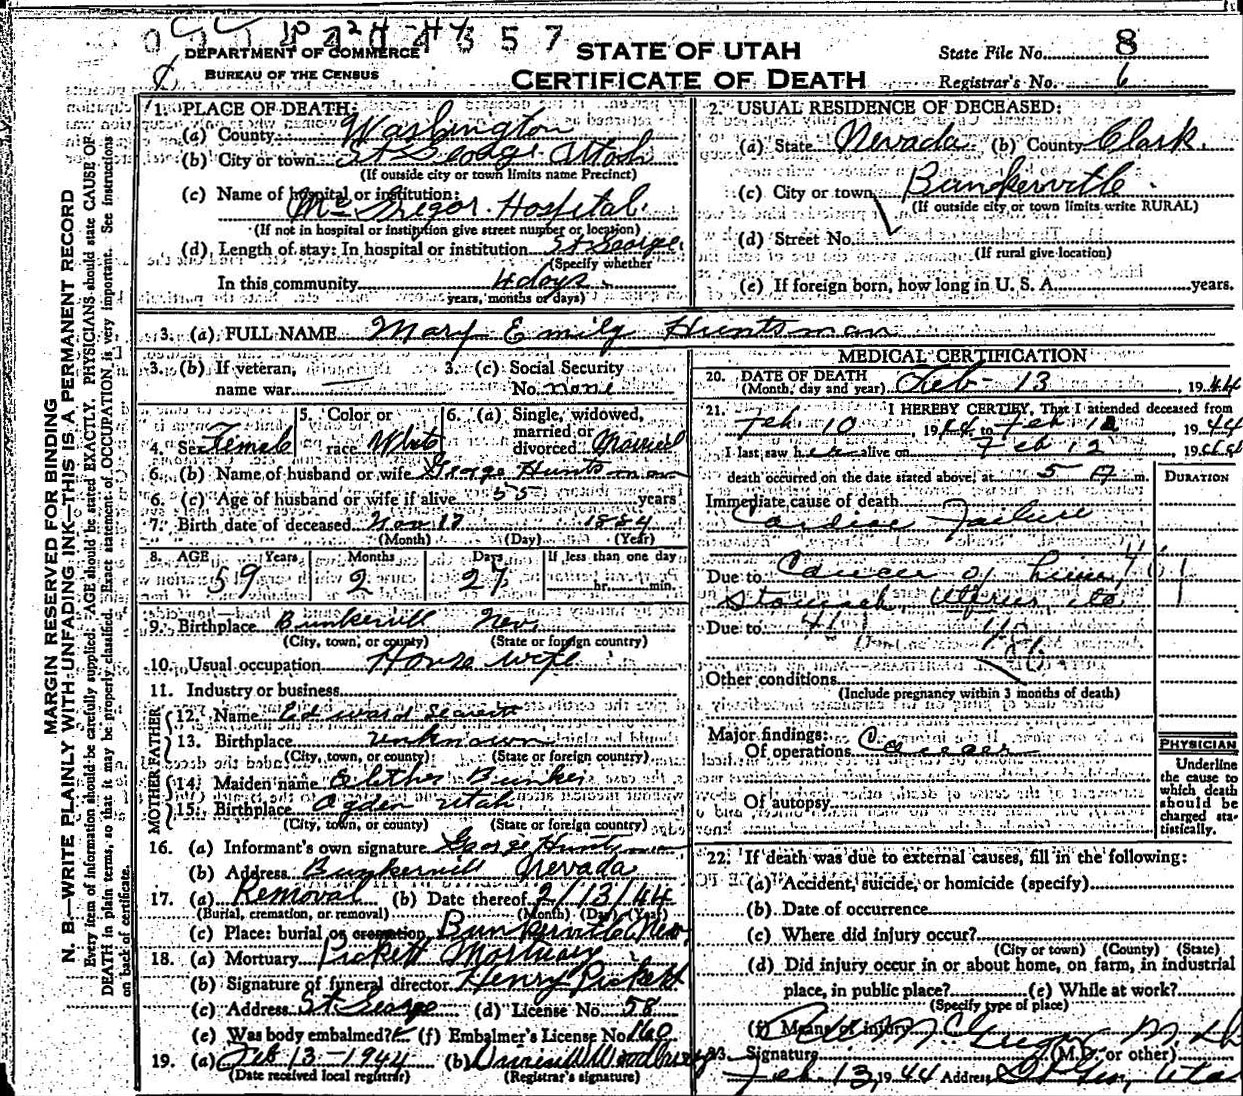 DEPARTMENT OF COMMERCE
BUREAU OF THE CENSUS
STATE OF UTAH
CERTIFICATE OF DEATH
State File No. 8
Registrar's No. 6
MARGIN RESERVED FOR BINDING
N. B.—WRITE PLAINLY WITH UNFADING INK—THIS IS A PERMANENT RECORD
Every item of information should be carefully supplied. AGE should be stated EXACTLY. PHYSICIANS should state CAUSE OF
DEATH in plain terms, so that it may be properly classified. Exact statement of OCCUPATION is very important. See instructions
on back of certificate.
1. PLACE OF DEATH:
(a) County Washington
(b) City or town St George Utah
(If outside city or town limits name Precinct)
(c) Name of hospital or institution:
Mc Gregor Hospital
(If not in hospital or institution give street number or location)
(d) Length of stay: In hospital or institution St George
(Specify whether
In this community 4 days
years, months or days)
2. USUAL RESIDENCE OF DECEASED:
(a) State Nevada (b) County Clark.
(c) City or town Bunkerville
(If outside city or town limits write RURAL)
(d) Street No.
(If rural give location)
(e) If foreign born, how long in U. S. A. years.
3. (a) FULL NAME Mary Emily Huntsman
3. (b) If veteran,
name war
3. (c) Social Security
No. none
4. Sex Female
5. Color or
race White
6. (a) Single, widowed,
married or
divorced Married
6. (b) Name of husband or wife George Huntsman
6. (c) Age of husband or wife if alive 55 years
7. Birth date of deceased Nov 17 1884
(Month) (Day) (Year)
8. AGE Years Months Days If less than one day
59 2 27 hr. min.
9. Birthplace Bunkervill Nev.
(City, town, or county) (State or foreign country)
10. Usual occupation House wife
11. Industry or business
FATHER
12. Name Edward
13. Birthplace unknown
(City, town, or county) (State or foreign country)
MOTHER
14. Maiden name Bunker
15. Birthplace Ogden Utah
(City, town, or county) (State or foreign country)
16. (a) Informant's own signature George Huntsman
(b) Address Bunkervill Nevada
17. (a) Removal (b) Date thereof 2/13/44
(Burial, cremation, or removal) (Month) (Day) (Year)
(c) Place: burial or cremation Bunkerville Nev.
18. (a) Mortuary Pickett Mortuary
(b) Signature of funeral director Henry Pickett
(c) Address St. George (d) License No. 58
(e) Was body embalmed? (f) Embalmer's License No. 160
19. (a) Feb 13-1944 (b) Woodbury
(Date received local registrar) (Registrar's signature)
MEDICAL CERTIFICATION
20. DATE OF DEATH
(Month, day and year) Feb - 13, 1944
21. I HEREBY CERTIFY, That I attended deceased from
Feb 10, 1944 to Feb 12, 1944
I last saw her alive on Feb 12 1944
death occurred on the date stated above, at 5 A m.
DURATION
Immediate cause of death
Cardiac Failure
Due to Cancer of Liver,
Stomach, Uterus, etc
Due to
Other conditions
(Include pregnancy within 3 months of death)
Major findings:
Of operations Cancer
Of autopsy
PHYSICIAN
Underline
the cause to
which death
should be
charged sta-
tistically.
22. If death was due to external causes, fill in the following:
(a) Accident, suicide, or homicide (specify)
(b) Date of occurrence
(c) Where did injury occur?
(City or town) (County) (State)
(d) Did injury occur in or about home, on farm, in industrial
place, in public place? (e) While at work?
(Specify type of place)
(f) Means of injury
23. Signature McGregor M.D.
(M.D. or other)
Feb. 13, 1944 Address St Geo, Utah